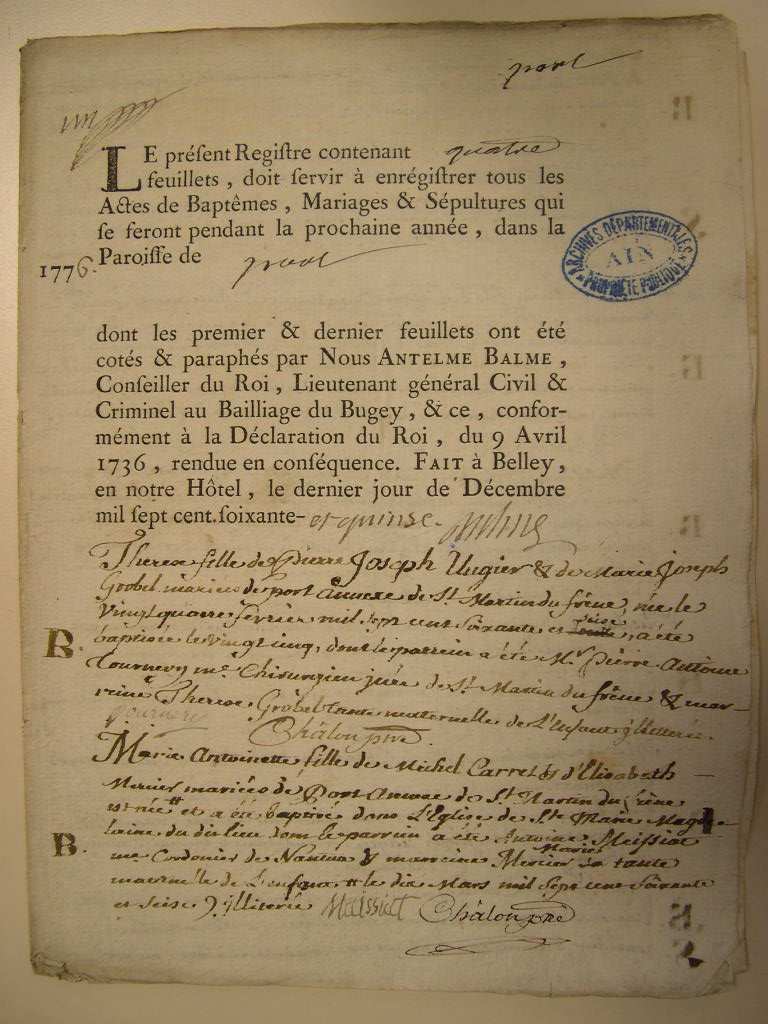 port
LE préſent Regiſtre contenant quatre
feuillets, doit ſervir à enrégiſtrer tous les
Actes de Baptêmes, Mariages & Sépultures qui
ſe feront pendant la prochaine année, dans la
1776. Paroiſſe de port
ARCHIVES DÉPARTEMENTALES
AIN
PROPRIÉTÉ PUBLIQUE
dont les premier & dernier feuillets ont été
cotés & paraphés par Nous ANTELME BALME,
Conſeiller du Roi, Lieutenant général Civil &
Criminel au Bailliage du Bugey, & ce, confor-
mément à la Déclaration du Roi, du 9 Avril
1736, rendue en conſéquence. FAIT à Belley,
en notre Hôtel, le dernier jour de Décembre
mil ſept cent ſoixante- et quinse.
Therese fille de Pierre Joseph Ungier & de Marie Joseph
Grobel mariés de port annexe de St. Martin du frêne, née le
vingt quatre fevrier mil sept cent soixante et seize, a été
B. baptisée le vingt cinq, dont le parrein a été Mr. pierre Antoine
Tournery me. Chirurgien juré de St. Martin du frêne & mar-
reine Therese Grobel tante maternelle de L'enfant illiterée.
Tournery Châlon ptre.
Marie Antoinette fille de Michel Carrel & d'Elisabeth
Mercier mariés de Port Annexe de St. Martin du frêne
est née et a été baptisée dans L'Eglise de Ste. Marie Magde
laine du dit lieu dont le parrein a été Antoine Meissiat
B. me. Cordonier de Nantua & marreine Marie Mercier sa tante
maternelle de L'enfant le dix Mars mil sept cent soixante
et seise illiterée Meissiat Châlon ptre